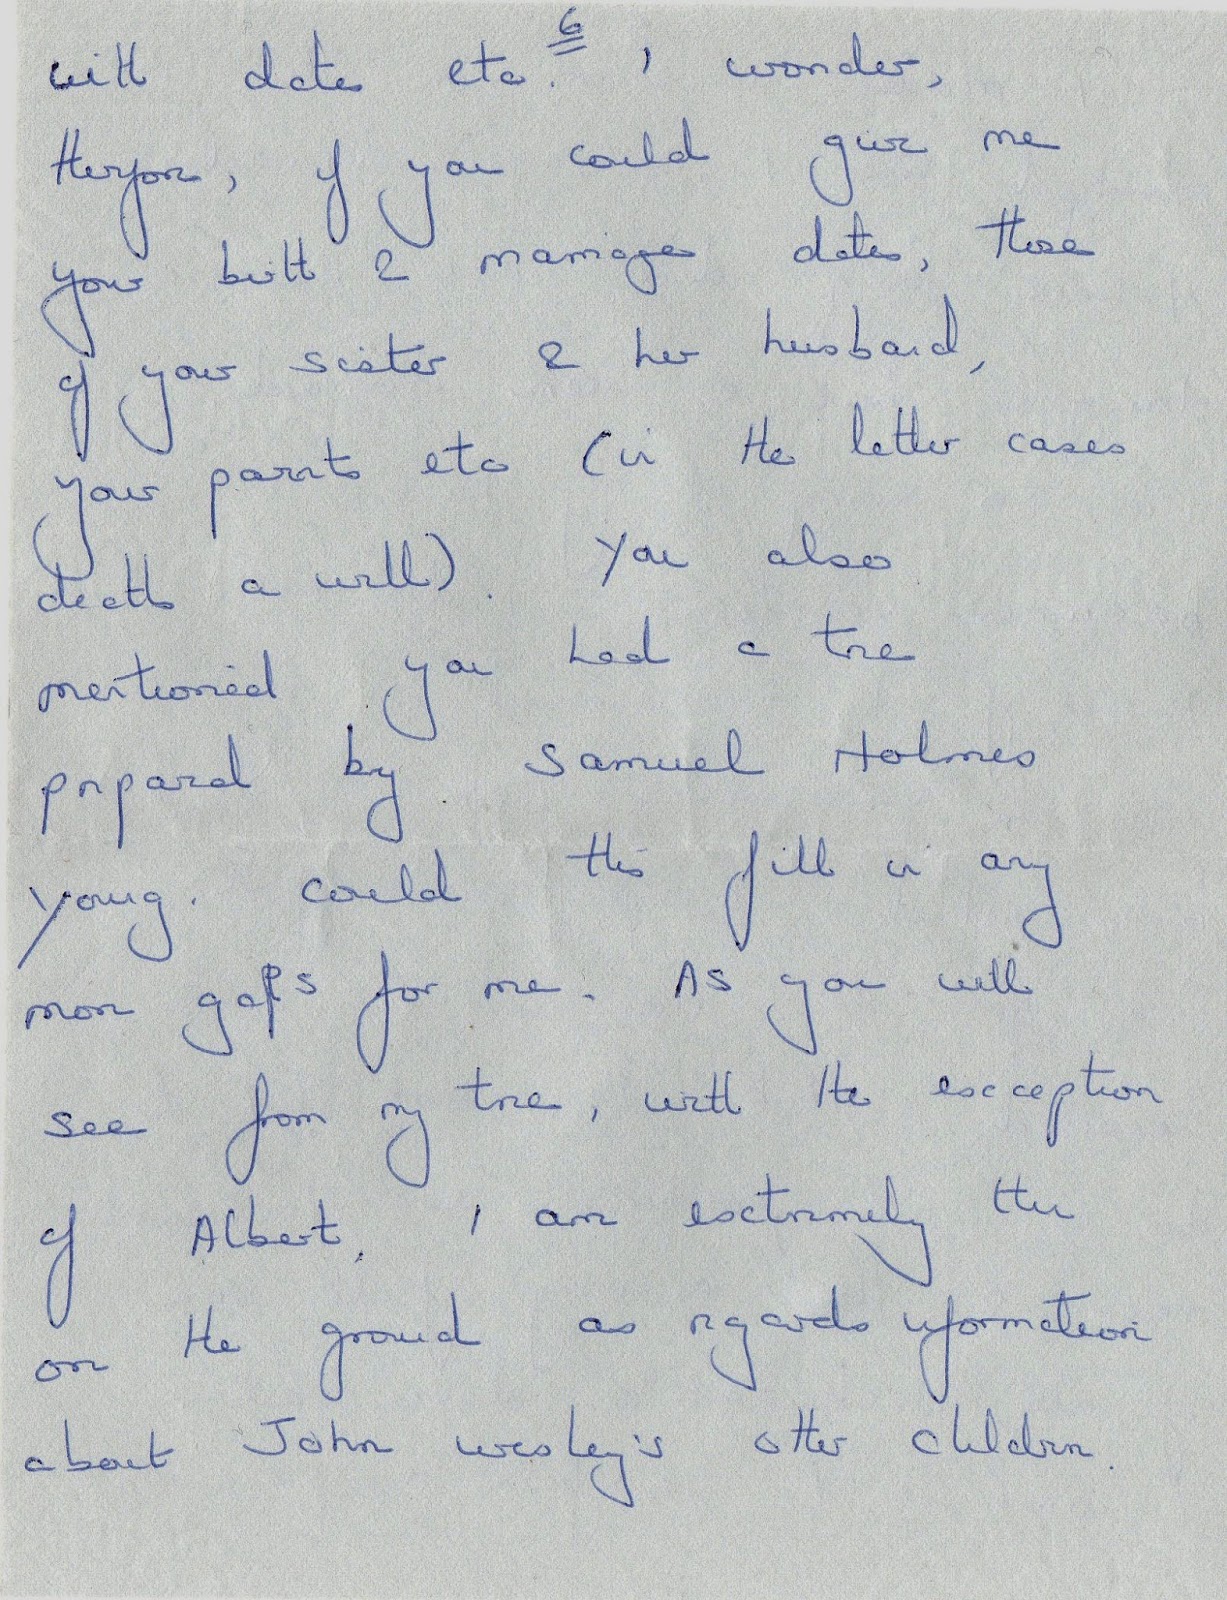 6
with dates etc. I wonder,
therefore, if you could give me
your birth & marriage dates, those
of your sister & her husband,
your parents etc (in the latter cases
death as well). You also
mentioned you had a tree
prepared by Samuel Holmes
Young. Could this fill in any
more gaps for me. As you will
see from my tree, with the exception
of Albert, I am extremely thin
on the ground as regards information
about John Wesley's other children.